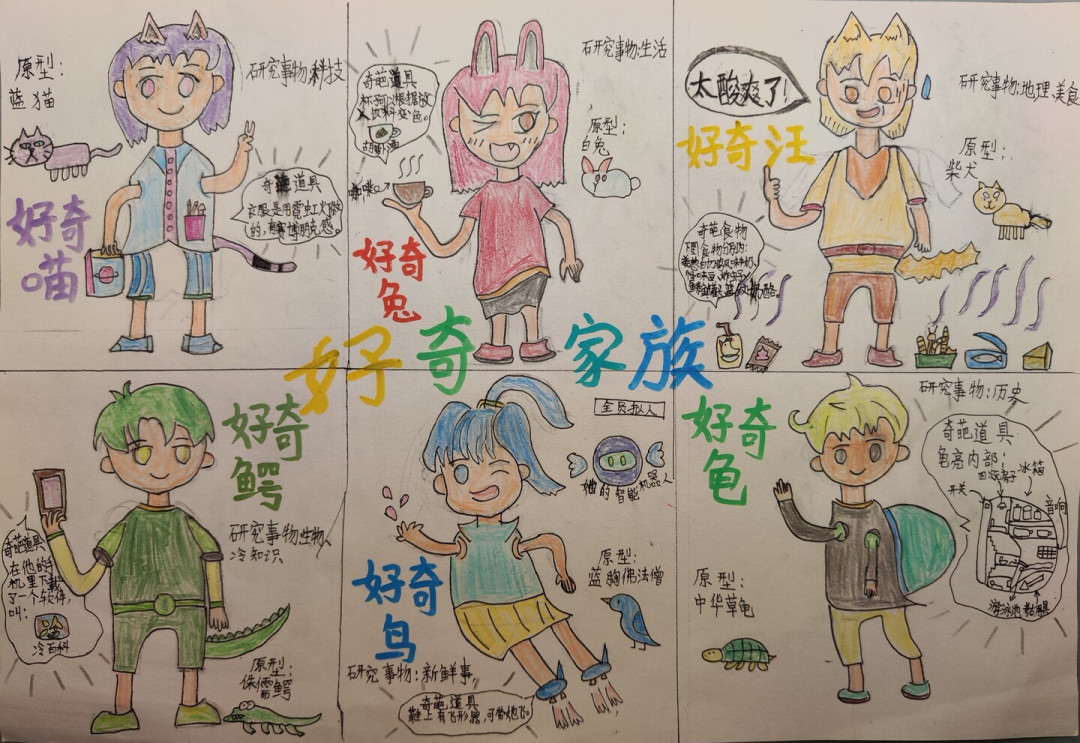 原型：
蓝猫
研究事物：科技
奇葩道具
衣服是用霓虹灯做
的，有赛博朋克感。
好奇
喵
研究事物：生活
奇葩道具
杯子可以根据放
入饮料变色。
原型：
白兔
好奇
兔
太酸爽了！
好奇汪
研究事物：地理、美食
原型：
柴犬
奇葩食物
好奇家族
好奇
鳄
研究事物：生物、
冷知识
奇葩道具
在他的手
机里下载
了一个软件，
叫：
冷百科
原型：
侏儒鳄
全员拟人
她的智能机器人
原型：
蓝胸佛法僧
好奇
鸟
研究事物：新鲜事
奇葩道具
鞋上有飞形器，可带她飞。
好奇
龟
研究事物：历史
奇葩道具
龟壳内部：
冰箱
开关
音响
游泳池
原型：
中华草龟